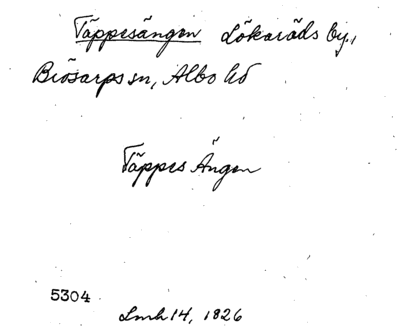 Täppesängen Lökaröds by.,
Brösarps sn, Albo hd
Täppes Ängen
5304
Lmh 14, 1826